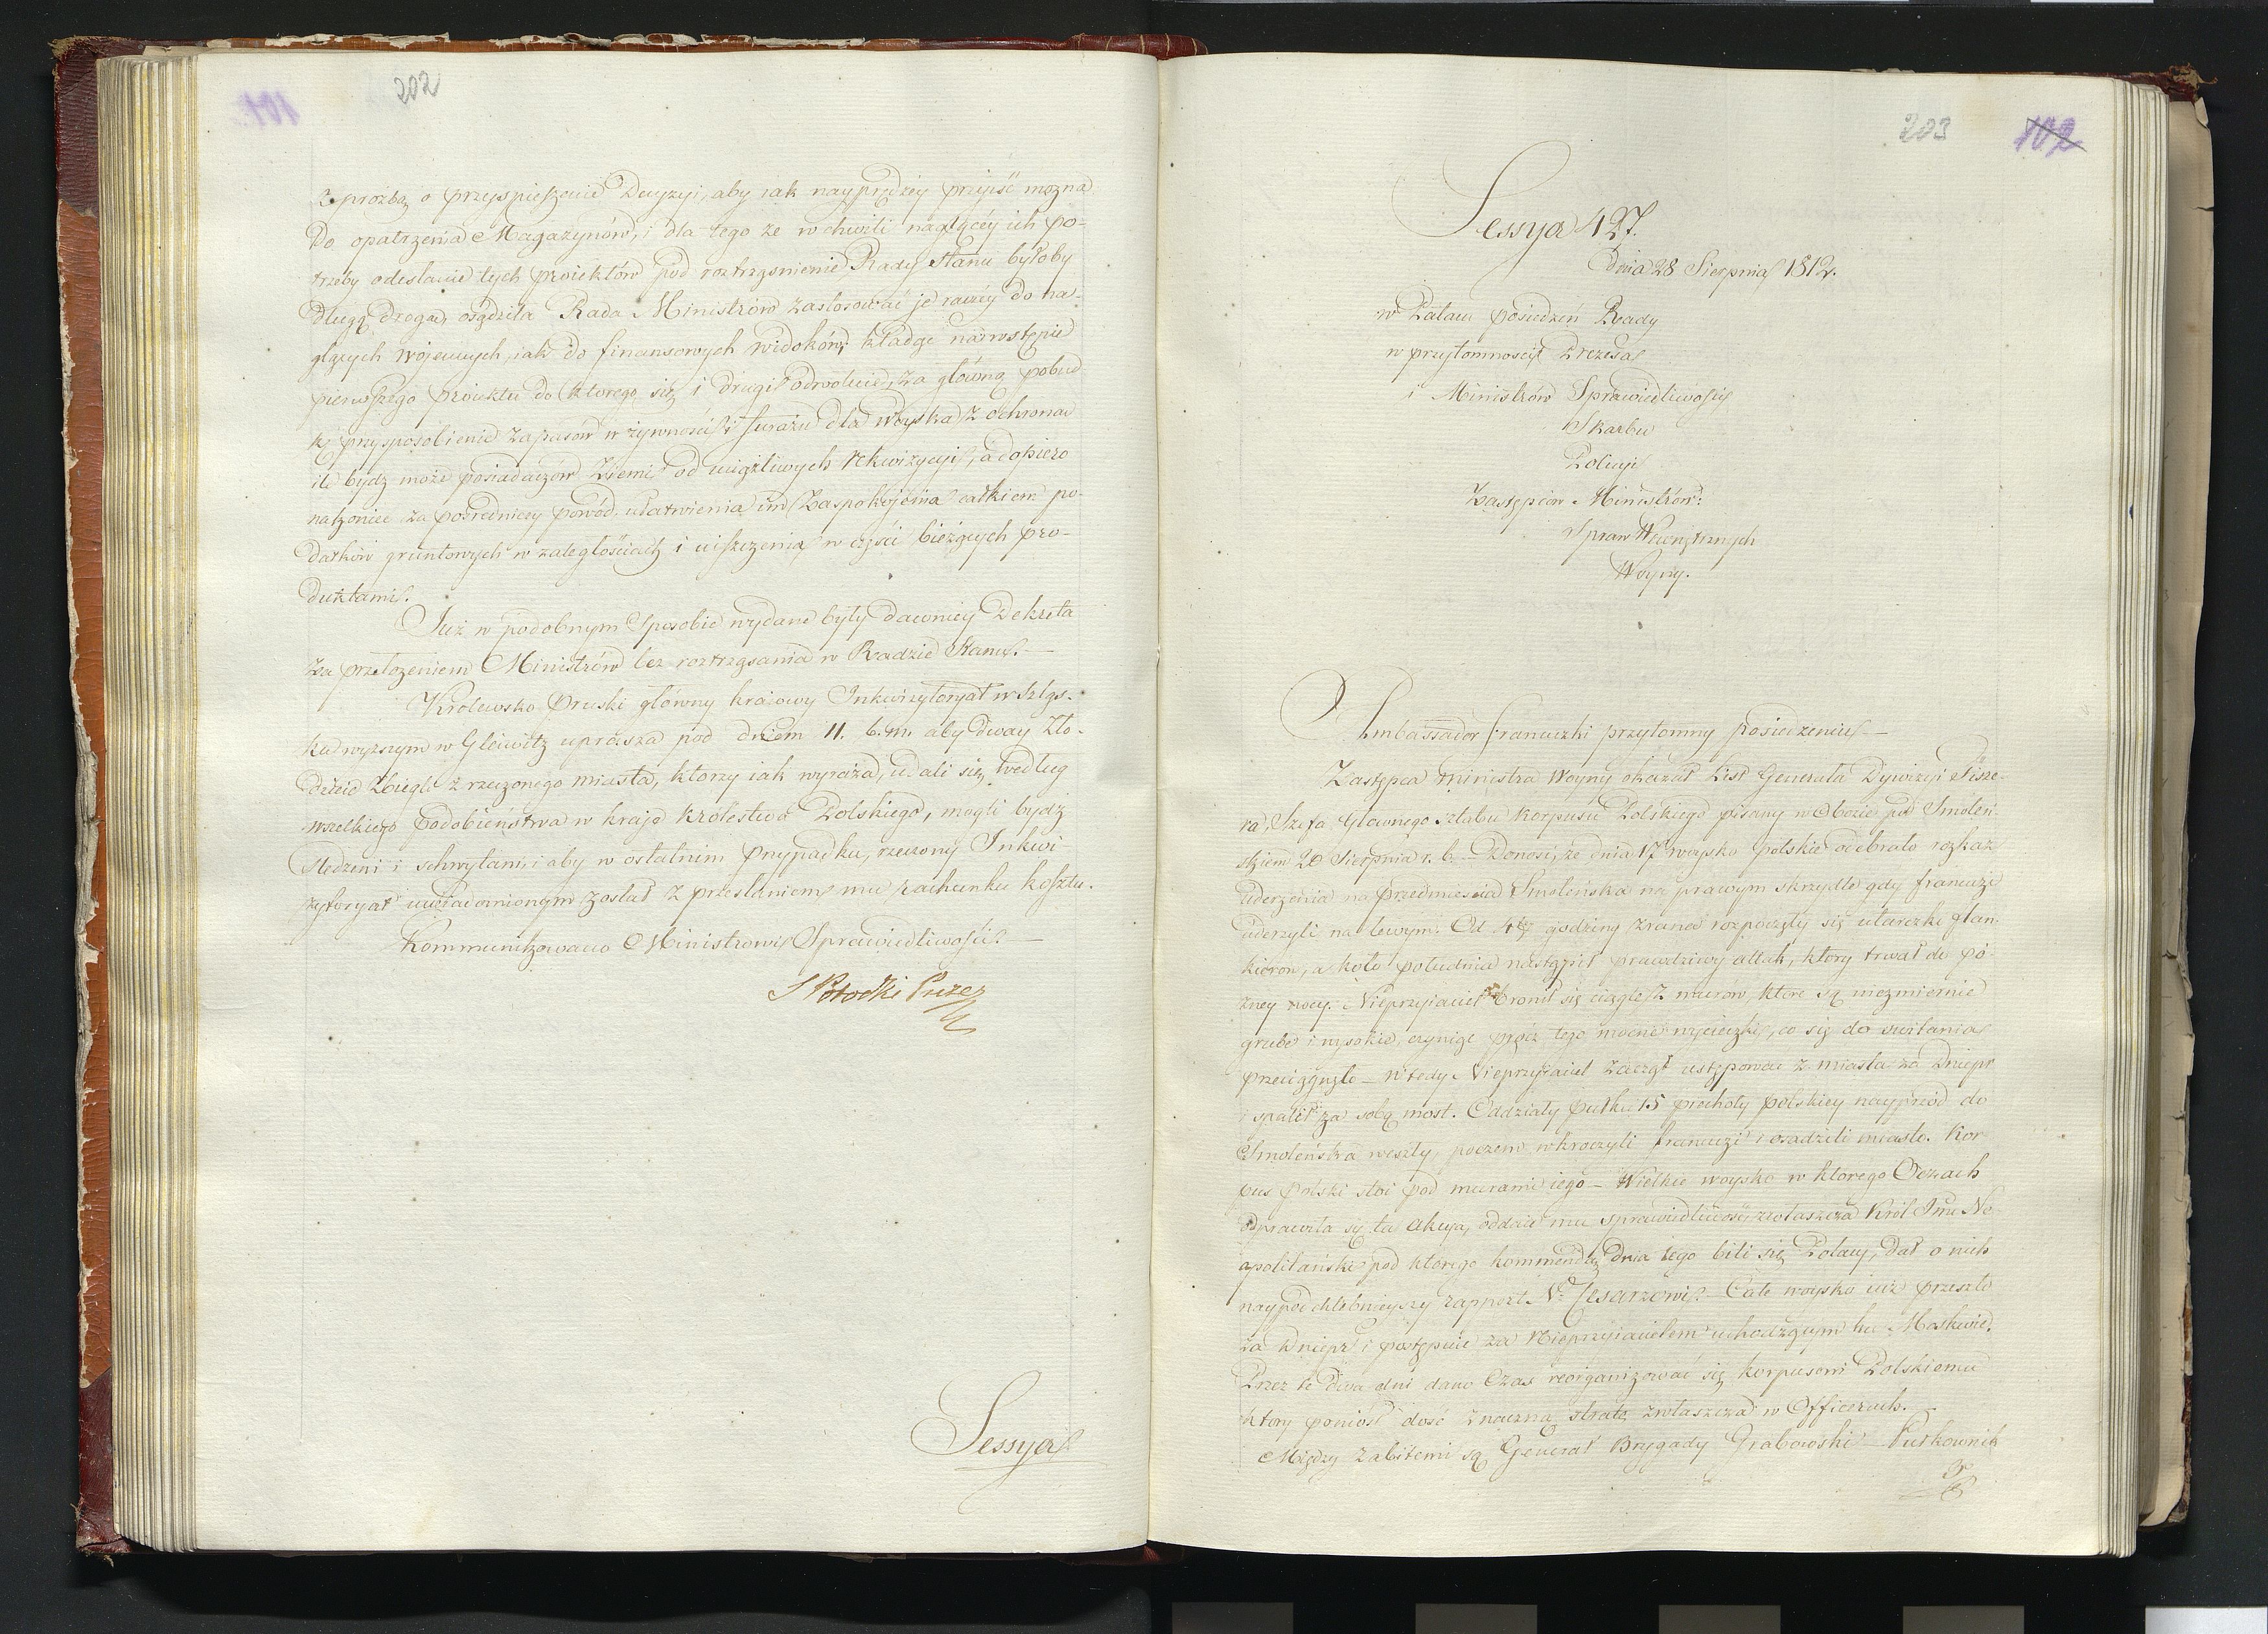 202
z prożbą o przyspieszenie Decyzyi, aby iak nayprędzey przyiść można
do opatrzenia Magazynów, i dla tego że w chwili naglącéy ich po-
trzeby odesłanie tych proiektów pod roztrząśnienie Rady Stanu byłoby
długą drogą, osądziła Rada Ministrów zastosować je raczéy do na-
glących woiennych, iak do finansowych widoków, kładąc na wstępie
pierwszego proiektu do ktorego się i drugi odwołuie, za główną pobud-
kę przysposobienie zapasów w żywności i furażu dla woyska z ochroną
ile bydz może posiadaczów Ziemi od uciążliwych rekwizycyi, a dopiero
nakoniec za pośredniczy powód, ułatwienia im zaspokojenia całkiem po-
datków gruntowych w zaległościach i uiszczenia w części bieżących pro-
duktami.
Już w podobnym sposobie wydane były dawniey Dekreta
za przełożeniem Ministrów bez roztrząsania w Radzie Stanu. —
Królewsko Pruski główny kraiowy Inkwizytoryat w Szląs-
ku wyższym w Gleiwitz uprasza pod dniem 11. b. m. aby dway zło-
dzieie zbiegli z rzeczonego miasta, ktorzy iak wyraża, udali się według
wszelkiego podobieństwa w kraje Królestwa Polskiego, mogli bydź
śledzeni i schwytani, i aby w ostatnim przypadku, rzeczony Inkwi-
zytoryat uwiadomionym został z przesłaniem mu rachunku kosztu.
Kommunikowano Ministrowi Sprawiedliwości. —
S Potocki Prezes
Sessya
203 102
Sessya 427.
Dnia 28 Sierpnia 1812.
w Pałacu posiedzeń Rady
w przytomności Prezesa
i Ministrów Sprawiedliwości
Skarbu
Policyi
Zastępców Ministrów:
Spraw Wewnętrznych
Woyny.
Ambassador Francuzki przytomny posiedzeniu —
Zastępca Ministra Woyny okazał List Generała Dywizyi Fisze-
ra, Szefa Głownego sztabu Korpusu Polskiego pisany w Obozie pod Smoleń-
skiem 20 Sierpnia r. b. — Donosi, że dnia 17 woysko polskie odebrało rozkaz
uderzenia na przedmieścia Smoleńska na prawym skrzydle gdy francuzi
uderzyli na lewym. Od 4tej godziny zrana rozpoczęły się utarczki flan-
kierow, a koło południa nastąpił prawdziwy attak, ktory trwał do pó-
zney nocy. Nieprzyiaciel bronił się ciągle z murow, które są niezmiernie
grube i wysokie, czyniąc prócz tego mocne wycieczki, co się do switania
przeciągnęło — wtedy Nieprzyiaciel zaczął ustępować z miasta za Dniepr
i spalił za sobą most. Oddziały pułku 15 piechoty polskiey nayprzód do
Smoleńska weszły, poczem wkroczyli francuzi i osadzili miasto. Kor-
pus polski stoi pod murami iego — Wielkie woysko w ktorego Oczach
odprawiła się ta akcya, oddaie mu sprawiedliwość, zwłaszcza Król Jmć Ne-
apolitański pod ktorego kommendą dnia tego bili się Polacy, dał o nich
naypochlebnieyszy rapport N: Cesarzowi. — Całe woysko już przeszło
za Dniepr i postępuie za Nieprzyiacielem uchodzącym ku Moskwie.
Przez te dwa dni dano Czas reorganizować się korpusowi Polskiemu
ktory poniósł dość znaczną stratę zwłaszcza w Officerach. —
Między zabitemi są Generał Brygady Grabowski — Pułkownik